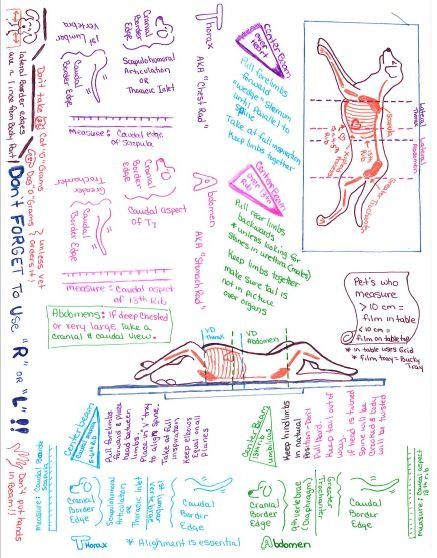 Thorax
AKA "Chest Rad"
Center Beam
over
Heart
Pull forelimbs
forward &
"wedge" Sternum
until Parallel to
Spine
Take at full inspiration
Keep limbs together
Cranial
Border
Edge
Scapulohumeral
Articulation
OR
Thoracic Inlet
1st Lumbar
Vertebra
Caudal
Border
Edge
Measure: Caudal edge
of Scapula
Abdomen
AKA "Stomach Rad"
Center Beam
over 13th
Rib
Pull rear limbs
backwards
* unless looking for
stones in urethra (males)
Keep limbs together
make sure tail is
not in picture
over organs
Cranial
Border
Edge
Caudal aspect
of T7
Greater
Trochanter
Caudal
Border
Edge
measure: Caudal aspect
of 13th Rib
Abdomens: if deep chested
or very large take a
cranial & caudal view.
lateral Border edges
are ~ 1 inch from body Part
Don't take Cat-O-Grams
or Dog "o" Grams
unless vet
orders it!
DON'T FORGET To Use "R" or "L"!!!
Don't put hands
in beam!!
Lateral
Thorax
Lateral
Abdomen
Scapula
13th
Rib
Greater Trochanter
Pet's who
measure
> 10 cm =
film in table
< 10 cm =
film on table top
* in table uses Grid
* film tray = Bucky
Tray
VD
Thorax
VD
Abdomen
Center Beam
Pull forelimbs
forward & place
head between
limbs.
Place in V tray
to align spine
Take at full
inspiration
Keep elbows
on equal
Planes
Cranial
Border
Edge
Scapulohumeral
Articulation or
Thoracic Inlet
1st lumbar
vertebrae
Caudal
Border
Edge
measure: Caudal
Scapula
Thorax
* Alignment is essential
Center Beam
13th rib
umbilicus
Keep hind limbs
in natural
Position - Don't
Pull Back.
Keep tail out of
way.
if head is turned
Spine will be
Crooked & body
will be twisted
Cranial
Border
Edge
9th vertebrae
(Diaphragm)
Greater
Trochanter
Caudal
Border
Edge
measure: Caudal aspect
13th rib
Abdomen